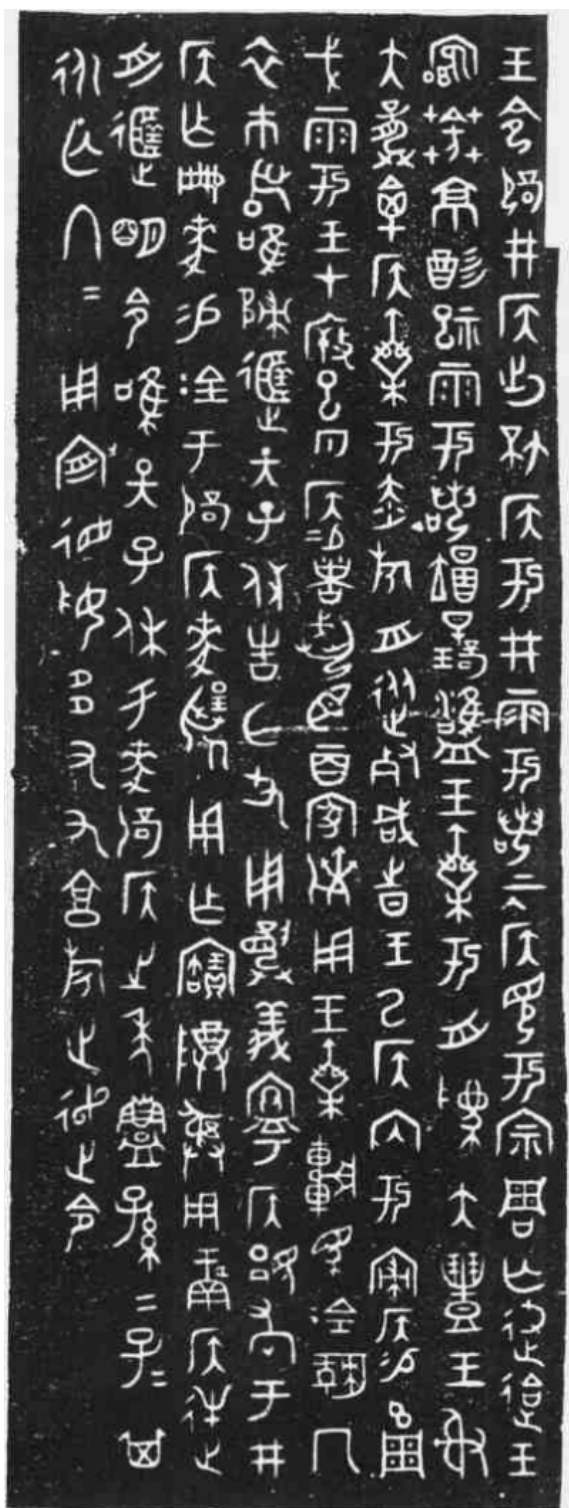 王令辟井侯出坏侯于井雩若二月侯見于宗周亡尤迨王
䓝京酌祀雩若翌日在璧雝王乘于舟為大豐王射
大龏禽侯乘于赤旂舟從死咸之日王以侯內于寢侯易玄周
戈雩王在㡴巳月侯易者䞤臣二百家劑用王乘車馬金勒冂
衣巿舄唯歸𢓊天子休告亡尤用龏義寧侯覭孝于井
侯乍冊麥易金于辟侯麥揚用乍寶尊彝用侯逆
舟𢓊明令唯天子休于麥辟侯之年鑄孫=子=其
永亡冬=用造德妥多友享旋走令